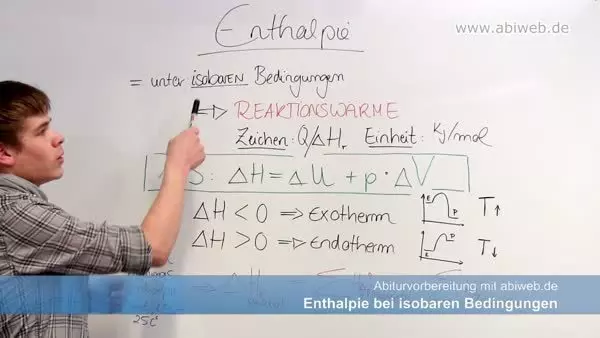 www.abiweb.de
Enthalpie
= unter isobaren Bedingungen
REAKTIONSWÄRME
Zeichen: Q/ΔHr Einheit: KJ/mol
S: ΔH = ΔU + p · ΔV
ΔH < 0 ⇒ Exotherm E P T↑
ΔH > 0 ⇒ Endotherm E P T↓
Abiturvorbereitung mit abiweb.de
Enthalpie bei isobaren Bedingungen
25C°